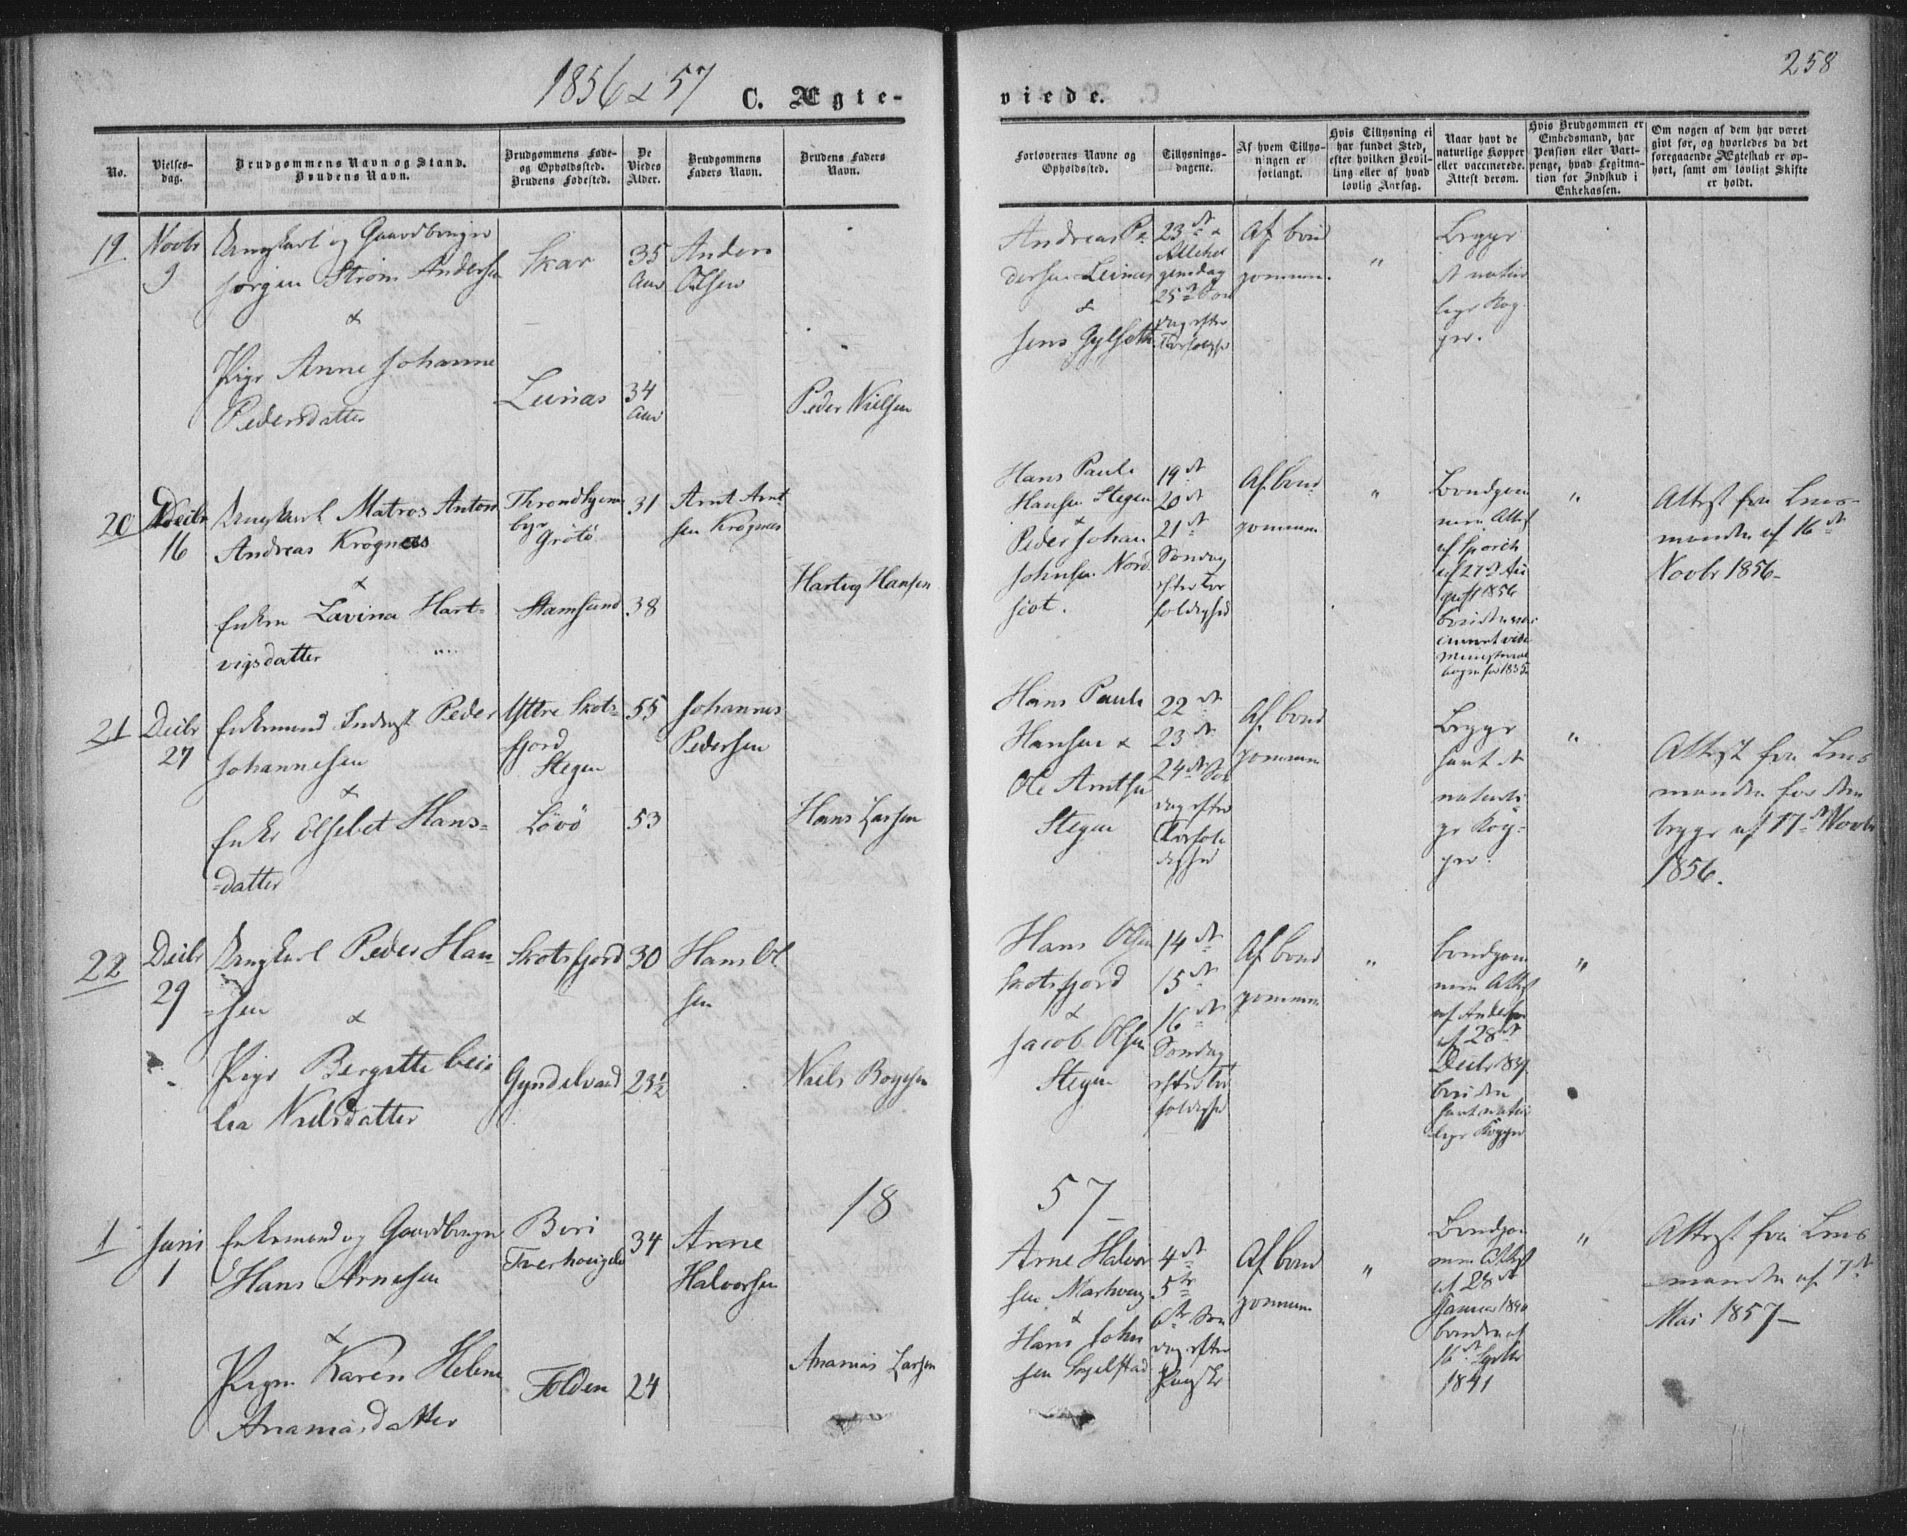 1856 & 57
C. Ægte-
viede.
258
No.
Vielses-
dag.
Brudgommens Navn og Stand.
Brudens Navn.
Brudgommens Føde-
og Opholdssted.
Brudens Fødested.
De
Viedes
Alder.
Brudgommens
Faders Navn.
Brudens Faders
Navn.
Forlovernes Navne og
Opholdssted.
Tillysnings-
dagene.
Af hvem Tillys-
ningen er
forlangt.
Hvis Tillysning ei
har fundet Sted,
efter hvilken Bevil-
ling eller af hvad
lovlig Aarsag.
Naar havt de
naturlige Kopper
eller vaccinerede.
Attest derom.
Hvis Brudgommen er
Embedsmand, har
Pension eller Vart-
penge, hvad Legitima-
tion for Indskud i
Enkekassen.
Om nogen af dem har været
gift før, og hvorledes da det
foregaaende Ægteskab er op-
hørt, samt om lovligt Skifte
er holdt.
19
Novbr
9
Ungkarl og Gaardbruger
Jørgen Strøm Andersen
&
Pige Anne Johanne
Pedersdatter
Skar
Leinas
35
Aar
34
Aar
Anders
Olsen
Peder Nielsen
Andreas Pe-
dersen Leinas
&
Jens Gylseth
23de &
Allehel
gensdag
25de Søn
dag efter
Af brud
gommen.
"
Begge
d natur
lige Kop-
per.
20
Decbr
16
Ungkarl Matros Anton
Andreas Krognæs
&
Enken Lavina Hart-
vigsdatter
Throndhjems
bye
Grøtø
Stamsund
31
38
Arnt Arnt
sen Krognes
Hartvig Hansen
Hans Paul
Hansen Stegen
&
Peder Johan
Johnsen Nord
19de
20de
21de
Søndag
efter Tre
foldighed
Af brud
gommen
"
Brudgom
men Attest
af 27de Au
gust 1856
bruden vac
cineret vide
Ministerial
bogen for 1835
"
Attest fra Lens-
manden af 16de
Novbr 1856-
21
Decbr
27
Enkemand Inderst Peder
Johannesen
&
Enke Elsebet Hans-
datter
Yttre Skots-
fjord
Stegen
Løvø
55
53
Johannes
Pedersen
Hans Larsen
Hans Paul
Hansen &
Ole Arntsen
Stegen
22de
23de
24de Søn
dag efter
Trefol
dighed
Af brud
gommen
Begge
havt de
naturli
ge Kop-
per.
"
Attest fra Lens
manden for dem
begge af 17de Novbr
1856.
22
Decbr
29
Ungkarl Peder Han-
sen
&
Pige Bergitte
Nielsdatter
Skotsfjord
Gyndelvand
30
23½
Hans Ol
sen
Niels Bogesen
Hans Olsen
Skotsfjord
&
Jacob Olsen
Stegen
14de
15de
16de
Søndag
efter Tre
foldighed
Af brud
gommen
"
Brudgom
men Attest
af Andersen
af 28de
Decbr 1839
bruden
havt natur
lige Kopper
"
18
57
1
Juni
1
Enkemand og Gaardbruger
Hans Arnesen
&
Pigen Karen Helene
Ananiasdatter
Folden
34
24
Arne
Halvorsen
Ananias Larsen
Arne Halvor
sen
&
Hans John
sen
4de
5te
6te Søn
dag efter
Paaske
Af brud
gommen
"
Brudgom
men Attest
af 28de
Januar 1840
bruden af
16de Septbr
1841
"
Attest fra Lens
manden af 7de
Mai 1857-